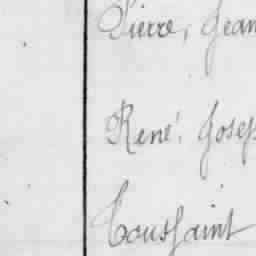 Pierre, Jean
René, Josep
Toussaint